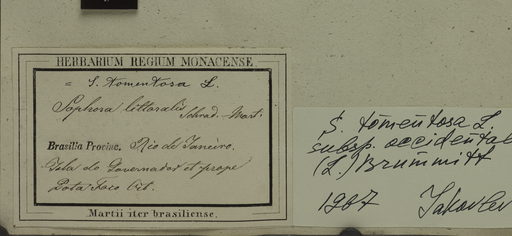 HERBARIUM REGIUM MONACENSE.
= S. tomentosa L.
Sophora littoralis Schrad. Mart.
Brasilia Provinc. Rio de Janeiro.
Isla do Governador et prope
Bot.
Martii iter brasiliense.
S. tomentosa L.
subsp. occidental
(L.) Brummitt
1967 Jakovlev